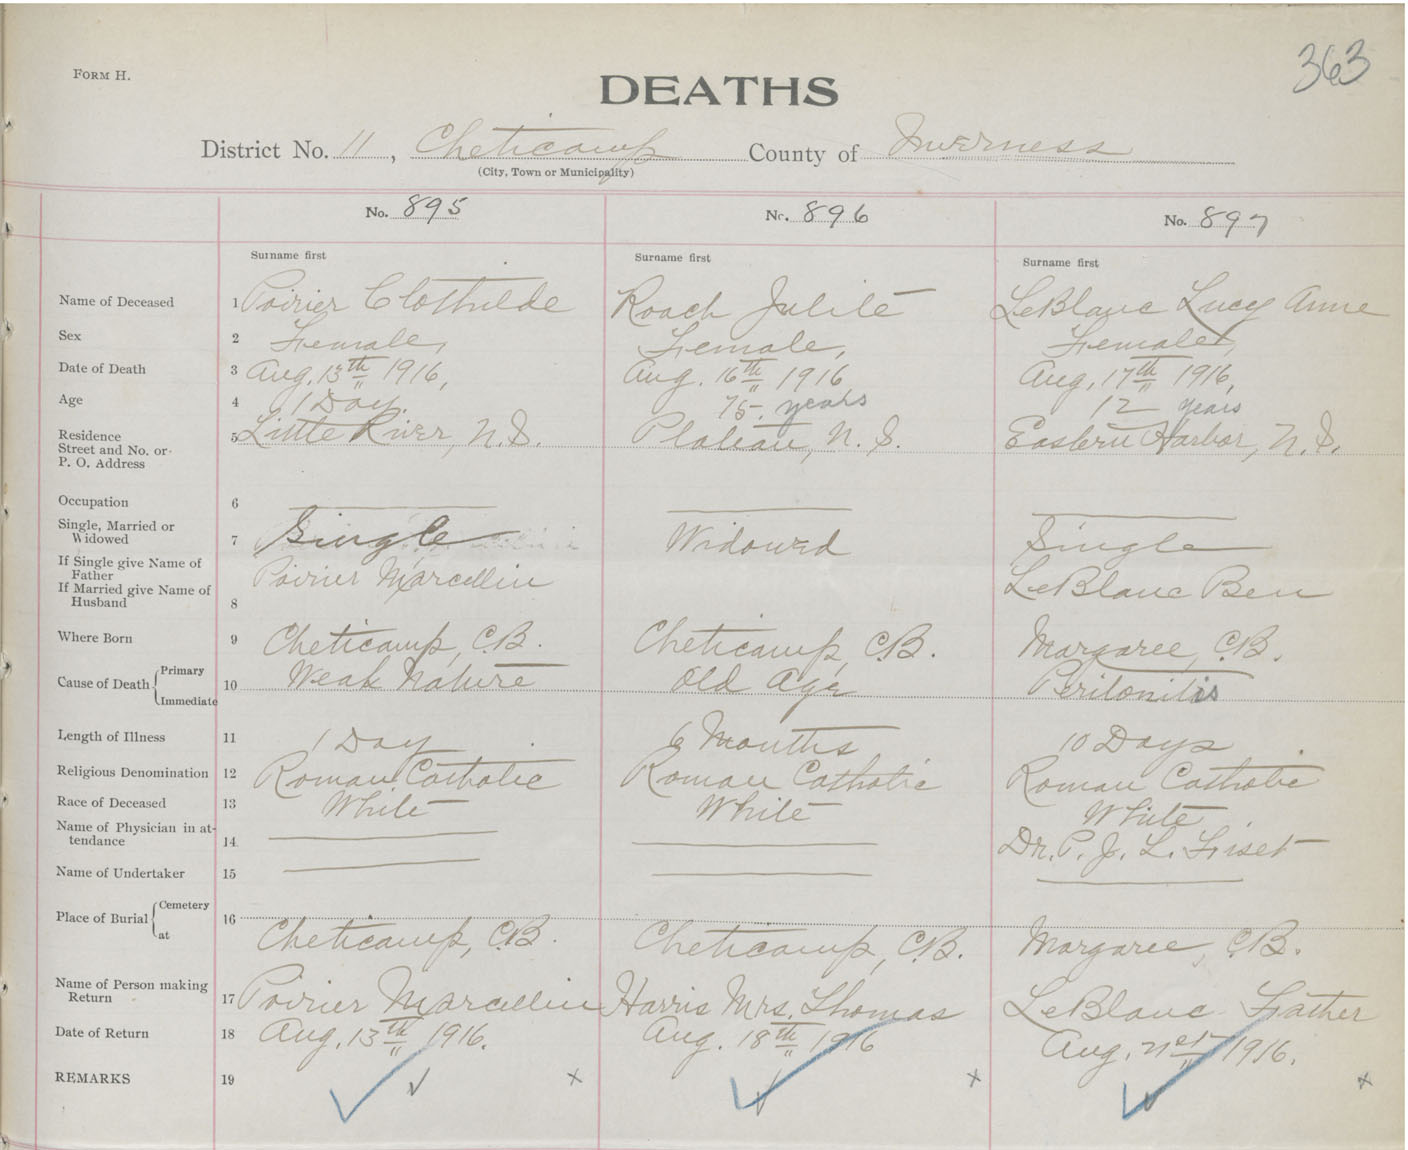 363
FORM H.
DEATHS
District No. 11, Cheticamp County of Inverness
(City, Town or Municipality)
No. 895 No. 896 No. 897
Surname first Surname first Surname first
Name of Deceased 1 Poirier Clothilde Roach Julite LeBlanc Lucy Anne
Sex 2 Female, Female, Female,
Date of Death 3 Aug. 13th 1916, Aug. 16th 1916 Aug, 17th 1916,
Age 4 1 Day 75 years 12 years
Residence
Street and No. or
P. O. Address 5 Little River, N.S. Plateau, N.S. Eastern Harbor, N.S.
Occupation 6
Single, Married or
Widowed 7 Single Widowed Single
If Single give Name of
Father
If Married give Name of
Husband 8 Poirier Marcellin LeBlanc Ben
Where Born 9 Cheticamp, C.B. Cheticamp, C.B. Margaree, C.B.
Cause of Death { Primary Immediate 10 Weak Nature Old Age Peritonitis
Length of Illness 11 1 Day 6 Months 10 Days
Religious Denomination 12 Roman Catholic Roman Catholic Roman Catholic
Race of Deceased 13 White White White
Name of Physician in at-
tendance 14 Dr. P. J. L. Fiset
Name of Undertaker 15
Place of Burial { Cemetery at 16 Cheticamp, C.B. Cheticamp, C.B. Margaree, C.B.
Name of Person making
Return 17 Poirier Marcellin Harris Mrs. Thomas LeBlanc Father
Date of Return 18 Aug. 13th 1916. Aug. 18th 1916 Aug. 21st 1916.
REMARKS 19 x x x